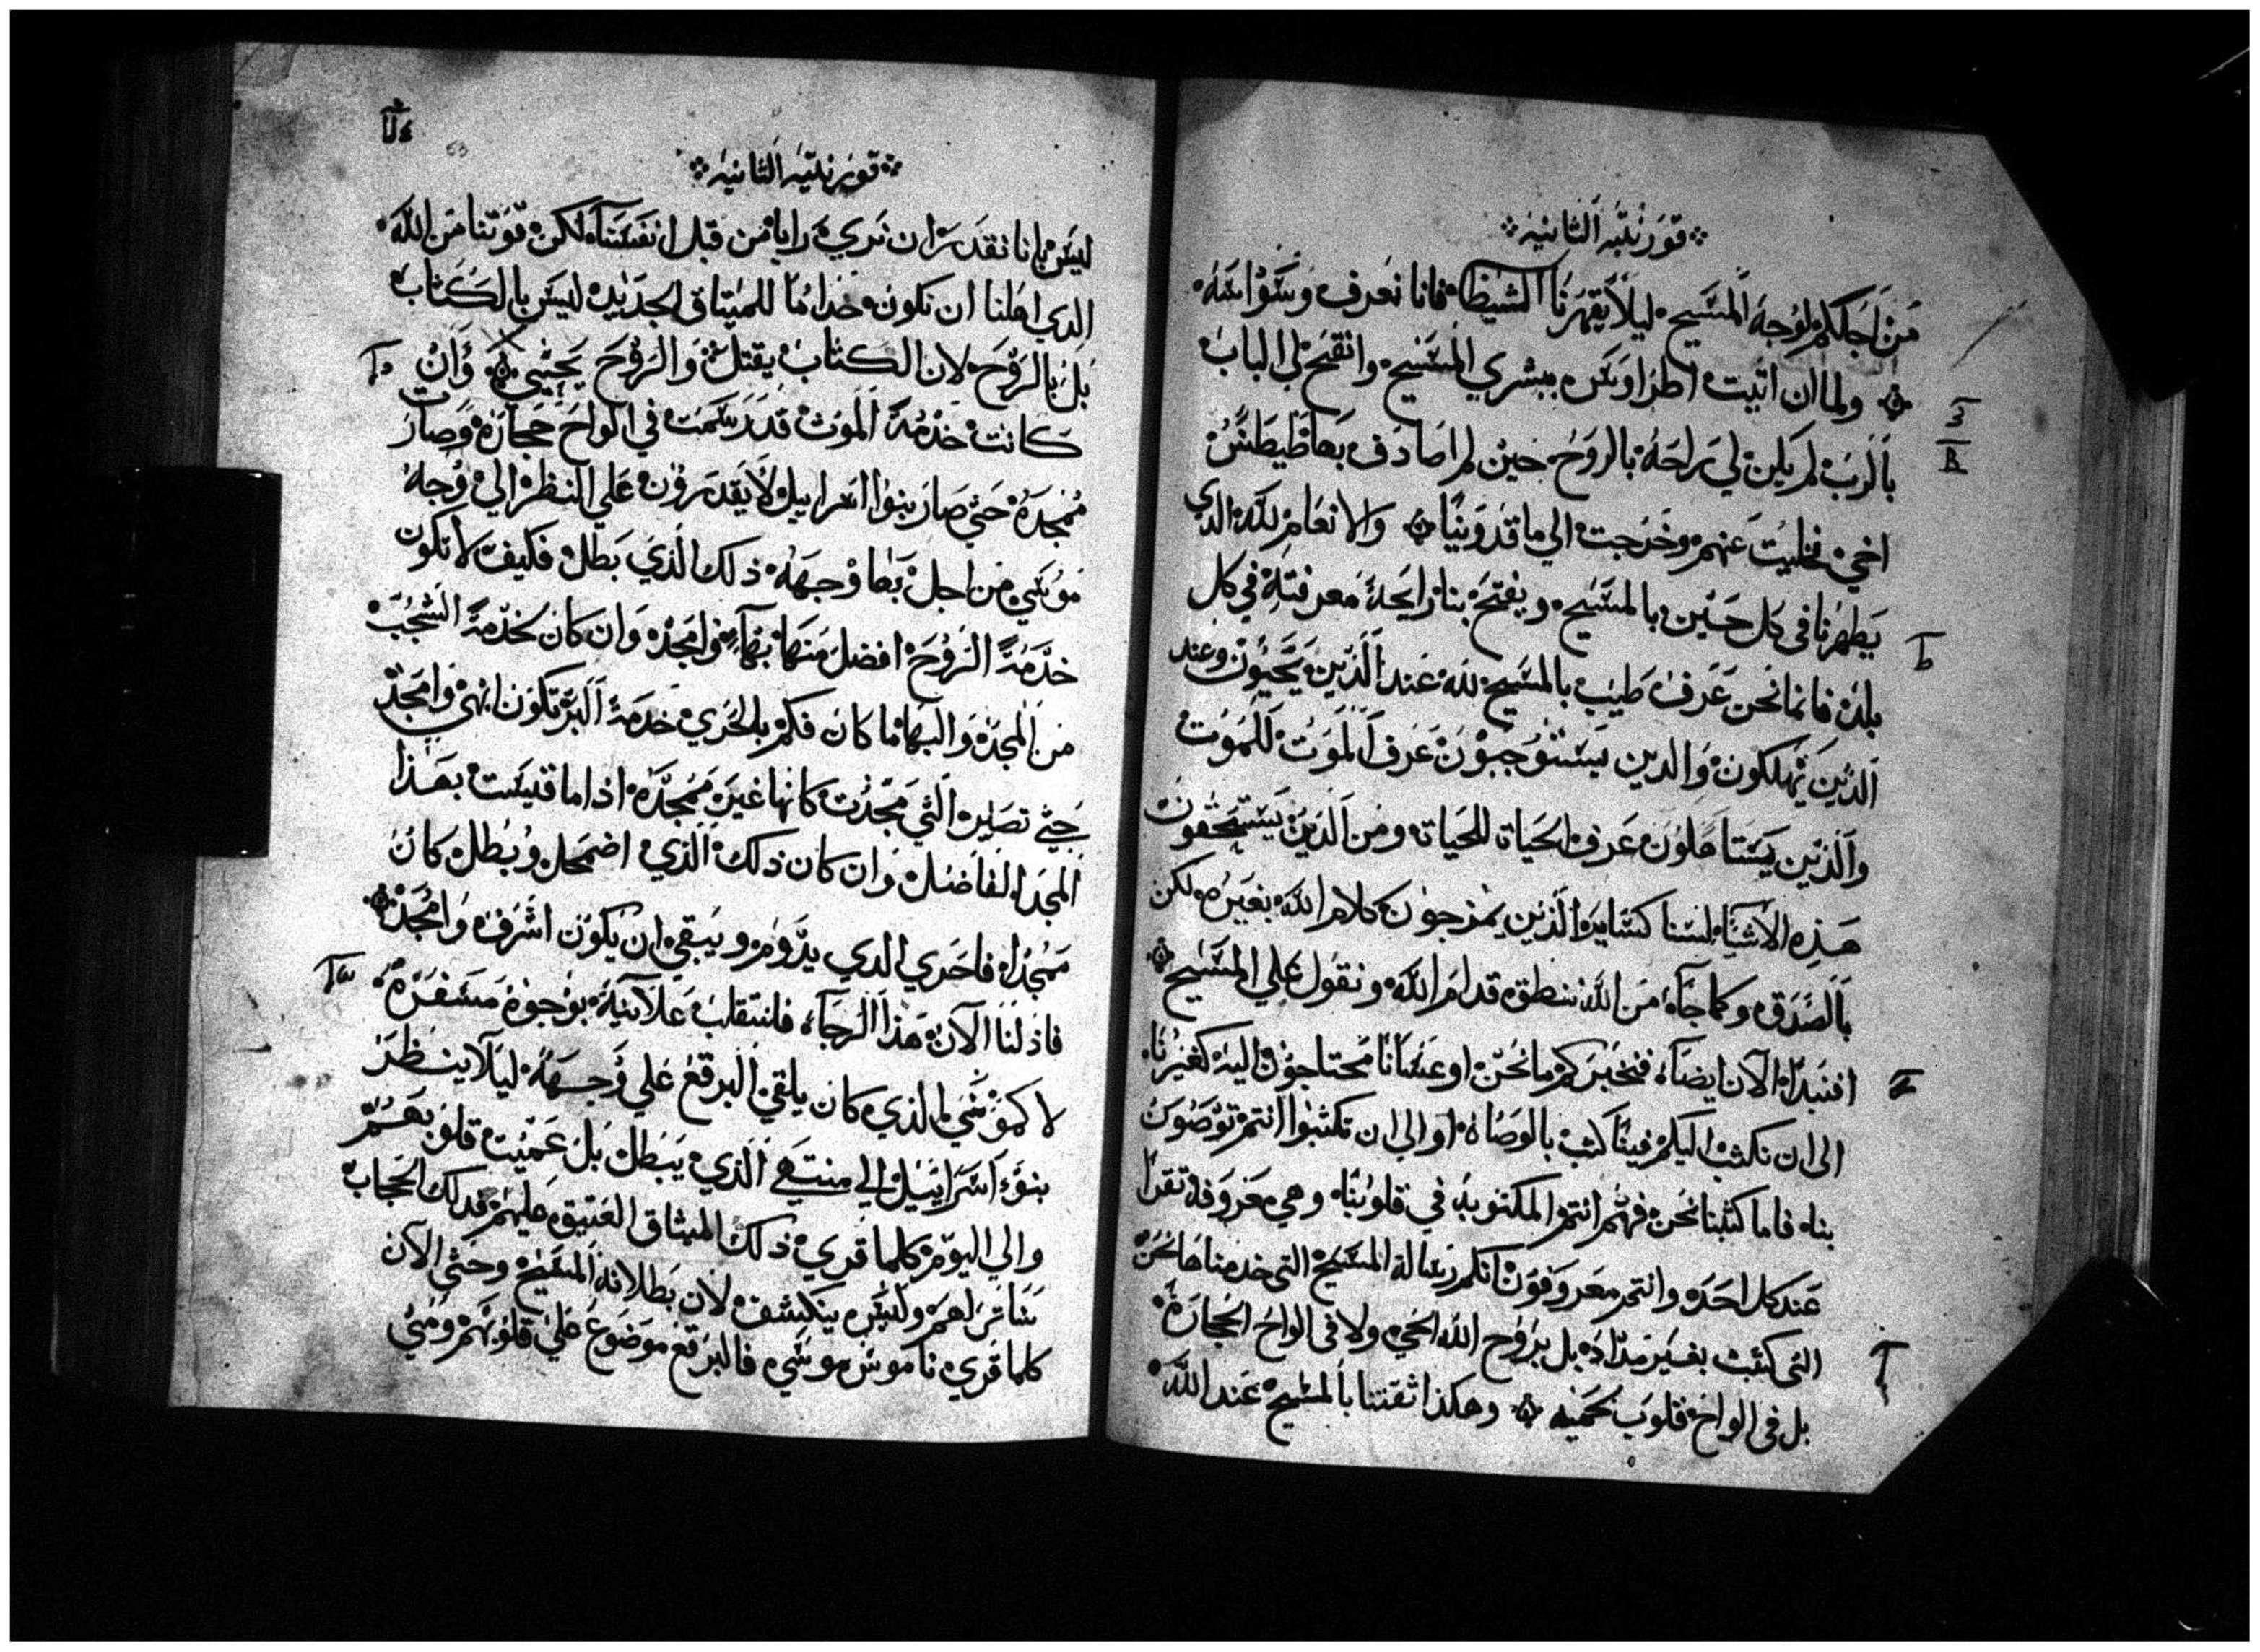 قورنتيه الثانيه
من اجلكم لوجه المسيح ليلا يقهرنا الشيطا فانا نعرف وسواسه
ولما ان اتيت اطراوس ببشري المسيح وانفتح لي الباب
بالرب لم يكن لي راحه بالروح حين لم اصادف بها طيطس
اخي فخليت عنهم وخرجت الي ماقدونيا والانعام لله الدي
يظهرنا في كل حين بالمسيح ويفتح بنا رايحة معرفته في كل
بلد فانما نحن عرف طيب بالمسيح لله عند الذين يحيون وعند
الذين يهلكون والدين يستوجبون عرف الموت للموت
والذين يستاهلون عرف الحياة للحياة ومن الذين يستحقون
هذه الاشيا لسنا كساير الذين يمزجون كلام الله بغيره لكن
بالصدق وكما جاء من الله ننطق قدام الله ونقول علي المسيح
افنبدا الان ايضا فنخبركم ما نحن او عسانا محتاجون اليه كغيرنا
الى ان نكتب اليكم فينا كتب بالوصاة او الى ان تكتبوا انتم توصون
بنا فاما كتبنا نحن فهم انتم المكتوبه في قلوبنا وهي معروفة تقرا
عند كل احد وانتم معروفون انكم رسالة المسيح التى خدمناها نحن
التى كتبت بغير مداد بل بروح الله الحي ولا فى الواح الحجارة
بل فى الواح قلوب لحميه وهكذا ثقتنا بالمسيح عند الله
53
قورنتيه الثانيه
ليس بانا نقدر ان نري رايا من قبل انفسنا لكن قوتنا من الله
الدي اهلنا ان نكون خداما للميتاق الجديد ليس بالكتاب
بل بالروح لان الكتاب يقتل والروح يحيي وان
كانت خدمة الموت قد رسمت في الواح حجارة وصار
ممجدة حتي صار بنوا اسراييل لا يقدرون علي النظر الي وجه
موسي من اجل بها وجهه ذلك الذي بطل فكيف لا تكون
خدمة الروح افضل منها بهاء وامجد وان كان لخدمة الشجب
من المجد والبها ما كان فكم بالحري خدمة البر تكون ابهى وامجد
حتي تصير التي مجدت كانها غير ممجده اذا ما قيست بهذا
المجد الفاضل وان كان ذلك الذي اضمحل وبطل كان
ممجدا فاحري الدي يدوم ويبقي ان يكون اشرف وامجد
فاذ لنا الان هذا الرجاء فلنتقلب علانية بوجوه مسفرة
لا كموسي الذي كان يلقي البرقع علي وجهه ليلا ينظر
بنو اسراييل الي منتهي الذي يبطل بل عميت قلوبهم
والي اليوم كلما قري ذلك الميثاق العتيق عليهم فدلك الحجاب
ساتر لهم وليس ينكشف لان بطلانه المسيح وحتي الان
كلما قري ناموس موسي فالبرقع موضوع علي قلوبهم ومتي